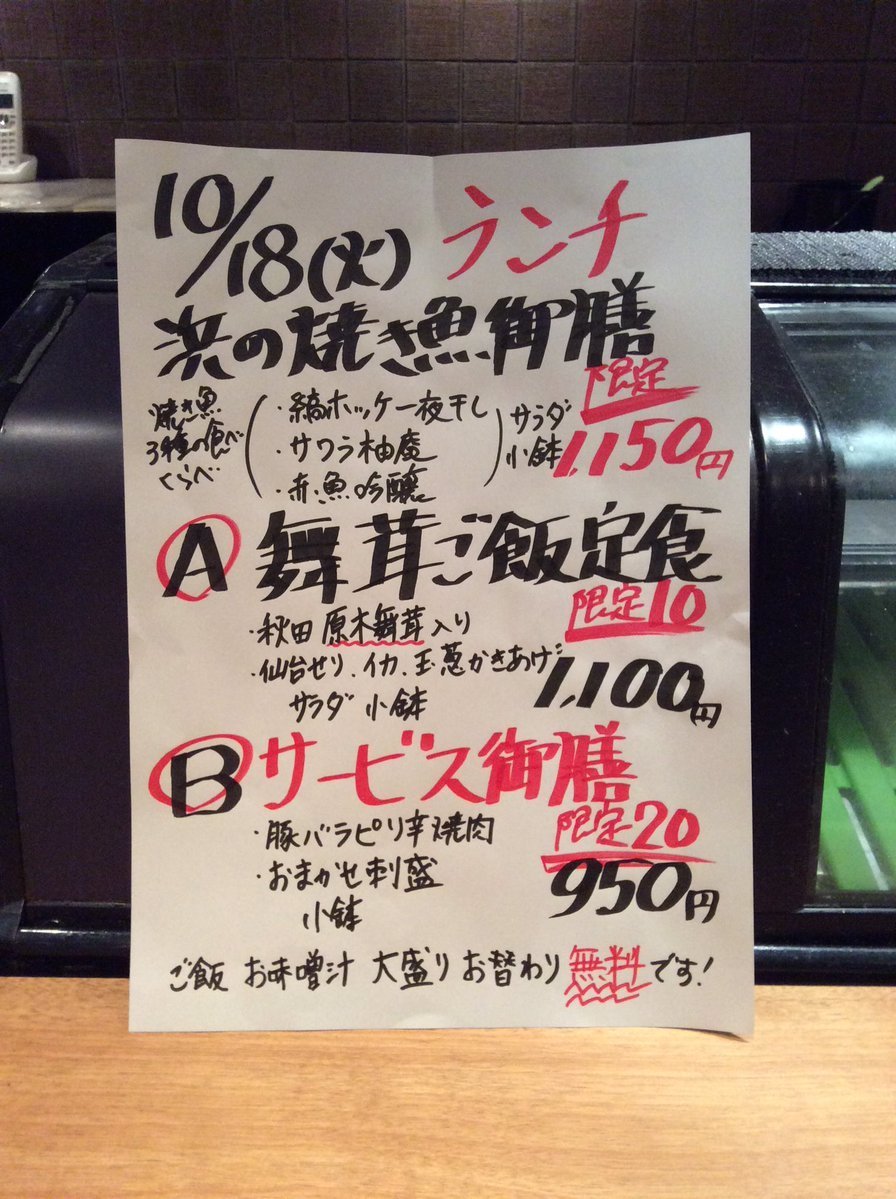 10/18(火) ランチ
浜の焼き魚御膳
限定
焼き魚
3種の食べ
くらべ
・縞ホッケ一夜干し
・サワラ柚庵
・赤魚吟醸
サラダ
小鉢
1,150円
A 舞茸ご飯定食
限定10
・秋田 原木舞茸入り
・仙台せり、イカ、玉葱かきあげ
サラダ 小鉢
1,100円
B サービス御膳
限定20
・豚バラピリ辛焼肉
・おまかせ刺盛
小鉢
950円
ご飯 お味噌汁 大盛り お替わり 無料です!